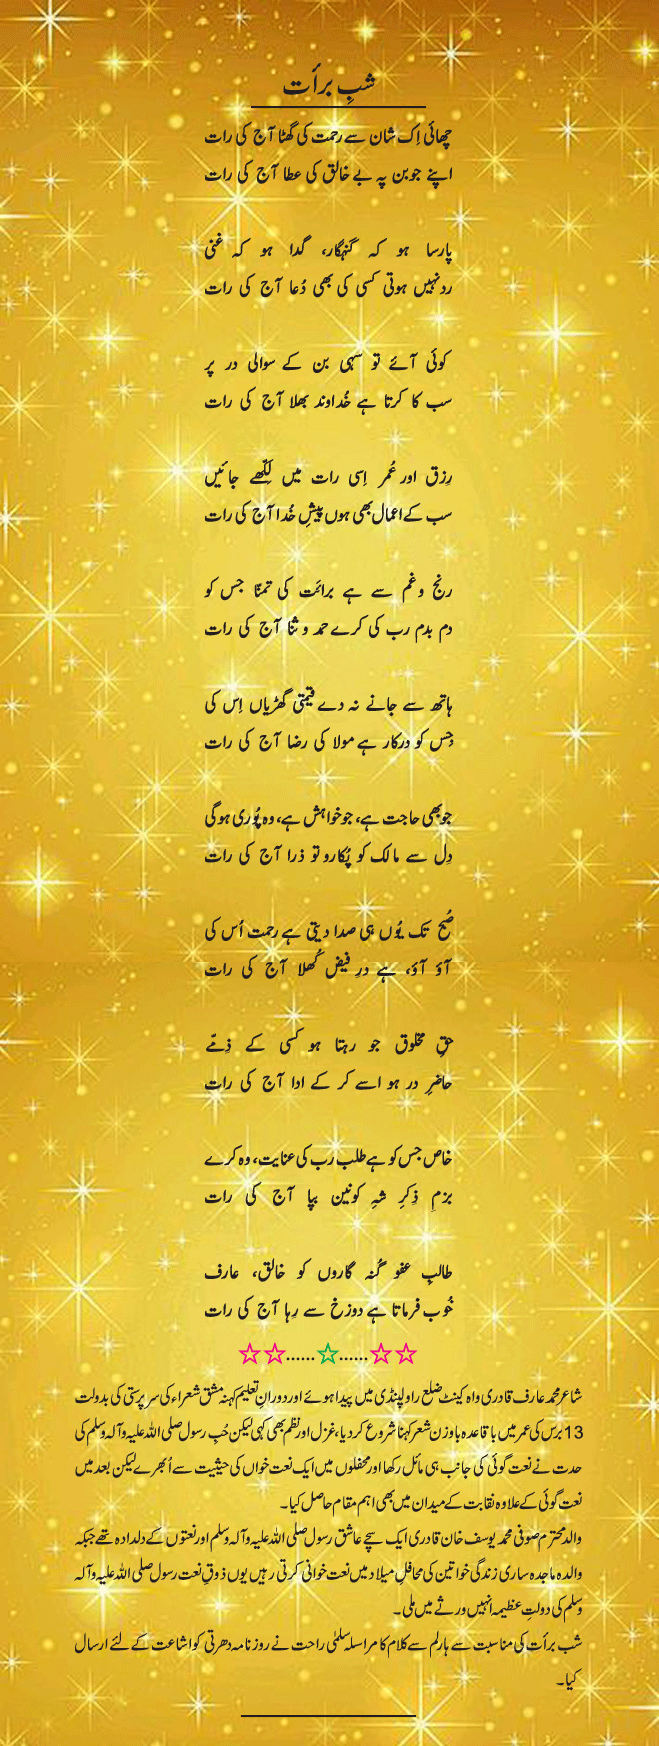 شبِ برأت
چھائی اِک شان سے رحمت کی گھٹا آج کی رات
اپنے جوبن پہ ہے خالق کی عطا آج کی رات
پارسا ہو کہ گنہگار، گدا ہو کہ غنی
رد نہیں ہوتی کسی کی بھی دُعا آج کی رات
کوئی آئے تو سہی بن کے سوالی در پر
سب کا کرتا ہے خُداوند بھلا آج کی رات
رِزق اور عُمر اِسی رات میں لِکھّے جائیں
سب کے اعمال بھی ہوں پیشِ خُدا آج کی رات
رنج و غم سے ہے برائت کی تمنّا جس کو
دم بدم رب کی کرے حمد و ثنا آج کی رات
ہاتھ سے جانے نہ دے قیمتی گھڑیاں اِس کی
جس کو درکار ہے مولا کی رضا آج کی رات
جو بھی حاجت ہے، جو خواہش ہے، وہ پُوری ہوگی
دِل سے مالک کو پُکارو تو ذرا آج کی رات
صُبح تک یُوں ہی صدا دیتی ہے رحمت اُس کی
آؤ آؤ، ہے درِ فیض کُھلا آج کی رات
حقِ مخلوق جو رہتا ہو کسی کے ذِمّے
حاضرِ در ہو اسے کر کے ادا آج کی رات
خاص جس کو ہے طلب رب کی عنایت، وہ کرے
بزمِ ذِکرِ شہِ کونین بپا آج کی رات
طالبِ عفو گُنہ گاروں کو خالق، عارف
خُوب فرماتا ہے دوزخ سے رِہا آج کی رات
☆☆......☆......☆☆
شاعر محمد عارف قادری واہ کینٹ ضلع راولپنڈی میں پیدا ہوئے اور دورانِ تعلیم کہنہ مشق شعراء کی سرپرستی کی بدولت
13 برس کی عمر میں باقاعدہ باوزن شعر کہنا شروع کر دیا، غزل اور نظم بھی کہی لیکن حُبِ رسول صلی اللہ علیہ وآلہ وسلم کی
حدت نے نعت گوئی کی جانب ہی مائل رکھا اور محفلوں میں ایک نعت خواں کی حیثیت سے اُبھرے لیکن بعد میں
نعت گوئی کے علاوہ نقابت کے میدان میں بھی اہم مقام حاصل کیا۔
والد محترم صوفی محمد یوسف خان قادری ایک سچے عاشقِ رسول صلی اللہ علیہ وآلہ وسلم اور نعتوں کے دلدادہ تھے جبکہ
والدہ ماجدہ ساری زندگی خواتین کی محافلِ میلاد میں نعت خوانی کرتی رہیں یوں ذوقِ نعت رسول صلی اللہ علیہ وآلہ
وسلم کی دولتِ عظیمہ انہیں ورثے میں ملی۔
شب برأت کی مناسبت سے ہارلم سے کلام کا مراسلہ سلمٰی راحت نے روزنامہ دھرتی کو اشاعت کے لئے ارسال
کیا۔